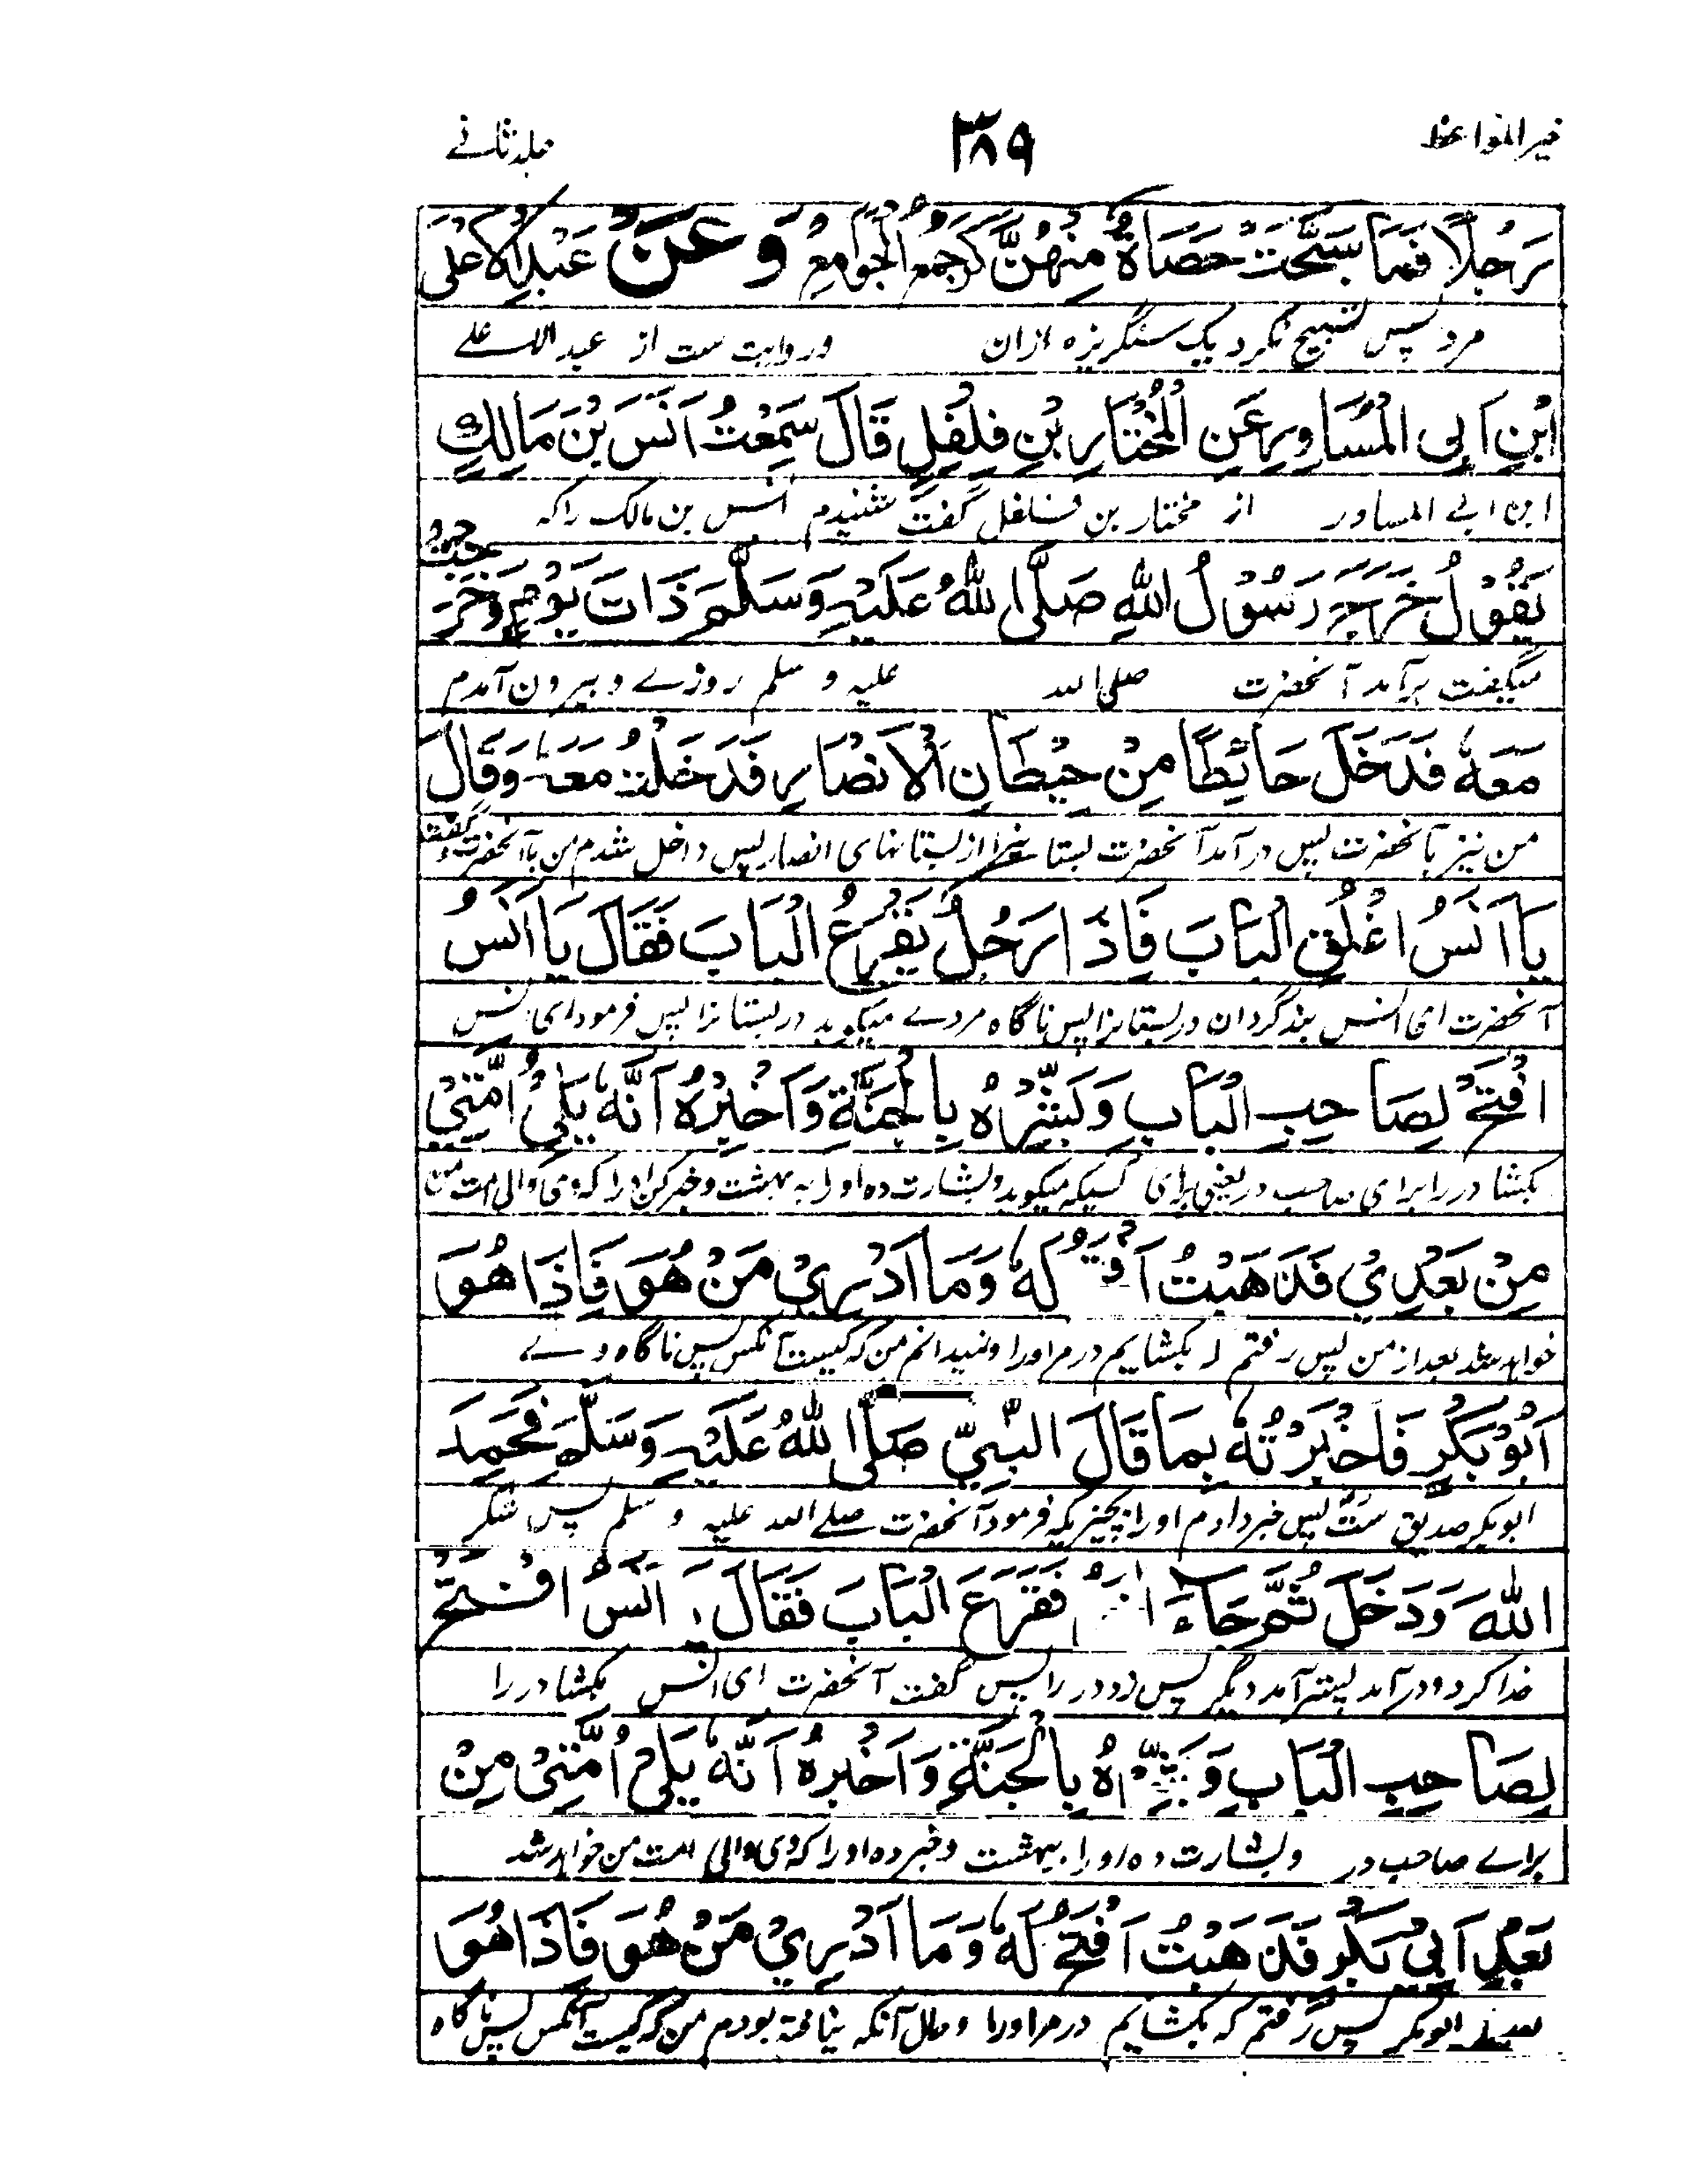 خیر المواعظ
۳۸۹
جلد ثانے
رَجُلًا فَمَا سَبَّحَتْ حَصَاةٌ مِنْهُنَّ جمع الجوامع وَعَنْ عَبْدِ الْاَعْلٰی
مرد پس تسبیح نکرد یک سنگریزه ازان وروایت ست از عبد الاعلے
ابْنِ اَبِی الْمُسَاوِرِ عَنِ الْمُخْتَارِ بْنِ فِلْفِلٍ قَالَ سَمِعْتُ اَنَسَ بْنَ مَالِكٍ
ابن ابی المساور از مختار بن فلفل گفت شنیدم انس بن مالک را که
یَقُوْلُ خَرَجَ رَسُوْلُ اللّٰهِ صَلَّی اللّٰهُ عَلَیْهِ وَسَلَّمَ ذَاتَ یَوْمٍ وَخَرَجْتُ
میگفت برآمد آنحضرت صلی الله علیه و سلم روزے و بیرون آمدم
مَعَهٗ فَدَخَلَ حَائِطًا مِنْ حِیْطَانِ الْاَنْصَارِ فَدَخَلْتُ مَعَهٗ وَقَالَ
من نیز بآنحضرت پس درآمد آنحضرت بستانے را از بستانهای انصار پس داخل شدم من با آنحضرت و گفت
یَا اَنَسُ اغْلُقِ الْبَابَ فَاِذَا رَجُلٌ یَقْرَعُ الْبَابَ فَقَالَ یَا اَنَسُ
آنحضرت ای انس بند گردان در بستانرا پس ناگاه مردے میکوبد در بستانرا پس فرمود ای انس
افْتَحْ لِصَاحِبِ الْبَابِ وَبَشِّرْهُ بِالْجَنَّةِ وَاَخْبِرْهُ اَنَّهٗ یَلِیْ اُمَّتِیْ
بکشا در را برای صاحب در یعنی برای کسیکه میکوبد و بشارت ده او را به بهشت و خبر کن او را که وی والی امت من
مِنْ بَعْدِیْ فَذَهَبْتُ لَهٗ وَمَا اَدْرِیْ مَنْ هُوَ فَاِذَا هُوَ
خواهد شد بعد از من پس رفتم بکشایم در مر او را و نمیدانم من که کیست آنکس پس ناگاه وے
اَبُوْ بَكْرٍ فَاَخْبَرْتُهٗ بِمَا قَالَ النَّبِیُّ صَلَّی اللّٰهُ عَلَیْهِ وَسَلَّمَ فَحَمِدَ
ابوبکر صدیق ست پس خبر دادم او را بچیزیکه فرمود آنحضرت صلے الله علیه و سلم پس شکر
اللّٰهَ وَدَخَلَ ثُمَّ جَاءَ فَقَرَعَ الْبَابَ فَقَالَ اَنَسُ افْتَحْ
خدا کرد و درآمد پستر آمد دیگر پس زد در را پس گفت آنحضرت ای انس بکشا در را
لِصَاحِبِ الْبَابِ وَبَشِّرْهُ بِالْجَنَّةِ وَاَخْبِرْهُ اَنَّهٗ یَلِیْ اُمَّتِیْ مِنْ
براے صاحب در و بشارت ده او را ببهشت و خبر ده او را که وی والی امت من خواهد شد
بَعْدِ اَبِیْ بَكْرٍ فَذَهَبْتُ اَفْتَحُ لَهٗ وَمَا اَدْرِیْ مَنْ هُوَ فَاِذَا هُوَ
بعد ابوبکر پس رفتم که بکشایم در مر او را و حال آنکه نیافته بودم من که کیست آنکس پس ناگاه